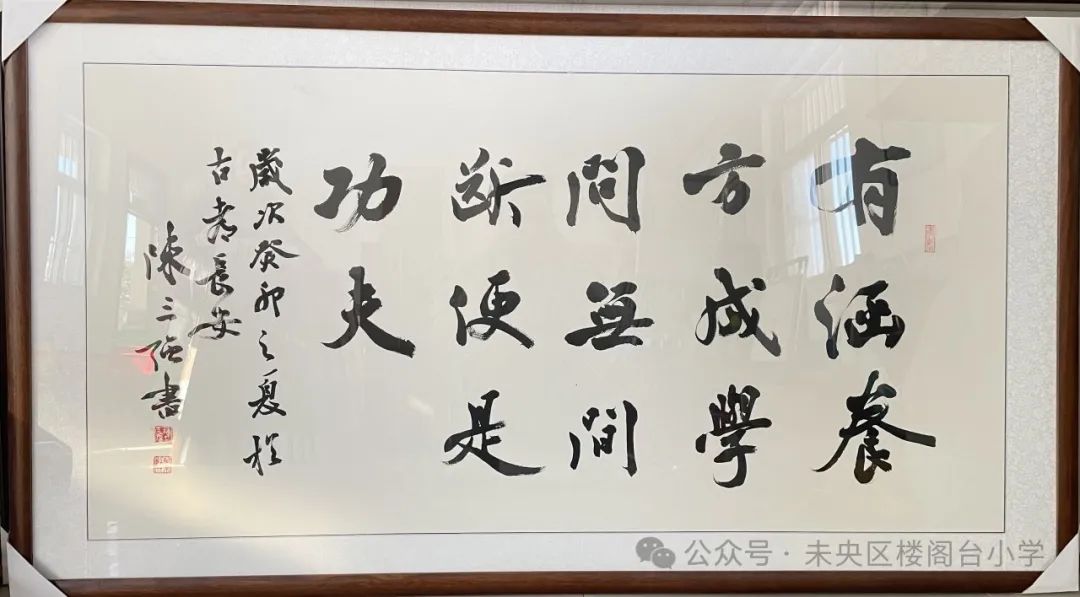 有涵養
方成學
問無間
斷便是
功夫
歲次癸卯之夏於
古都長安
陳三强書
公众号 · 未央区楼阁台小学